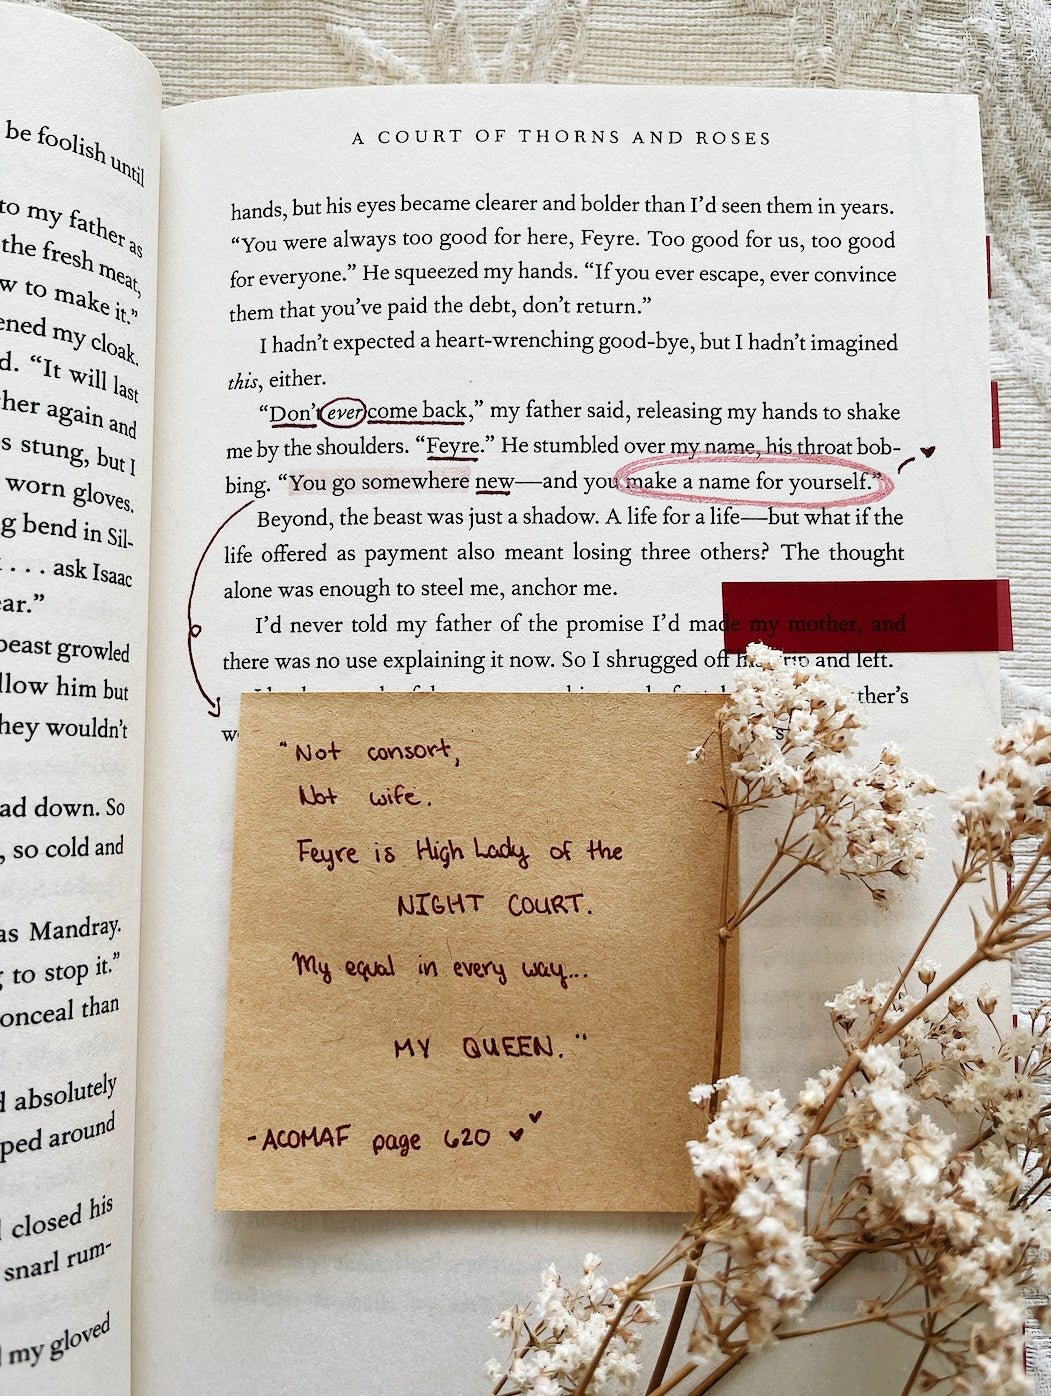 be foolish until
to my father as
the fresh meat,
w to make it.”
ened my cloak.
d. “It will last
her again and
s stung, but I
worn gloves.
g bend in Sil-
. . . ask Isaac
ear.”
beast growled
llow him but
hey wouldn’t
ad down. So
, so cold and
as Mandray.
g to stop it.”
onceal than
d absolutely
ped around
closed his
snarl rum-
my gloved
A COURT OF THORNS AND ROSES
hands, but his eyes became clearer and bolder than I’d seen them in years.
“You were always too good for here, Feyre. Too good for us, too good
for everyone.” He squeezed my hands. “If you ever escape, ever convince
them that you’ve paid the debt, don’t return.”
I hadn’t expected a heart-wrenching good-bye, but I hadn’t imagined
this, either.
“Don’t ever come back,” my father said, releasing my hands to shake
me by the shoulders. “Feyre.” He stumbled over my name, his throat bob-
bing. “You go somewhere new—and you make a name for yourself.”
Beyond, the beast was just a shadow. A life for a life—but what if the
life offered as payment also meant losing three others? The thought
alone was enough to steel me, anchor me.
I’d never told my father of the promise I’d made my mother, and
there was no use explaining it now. So I shrugged off his grip and left.
ther’s
"Not consort,
Not wife.
Feyre is High Lady of the
NIGHT COURT.
My equal in every way...
MY QUEEN."
-ACOMAF page 620